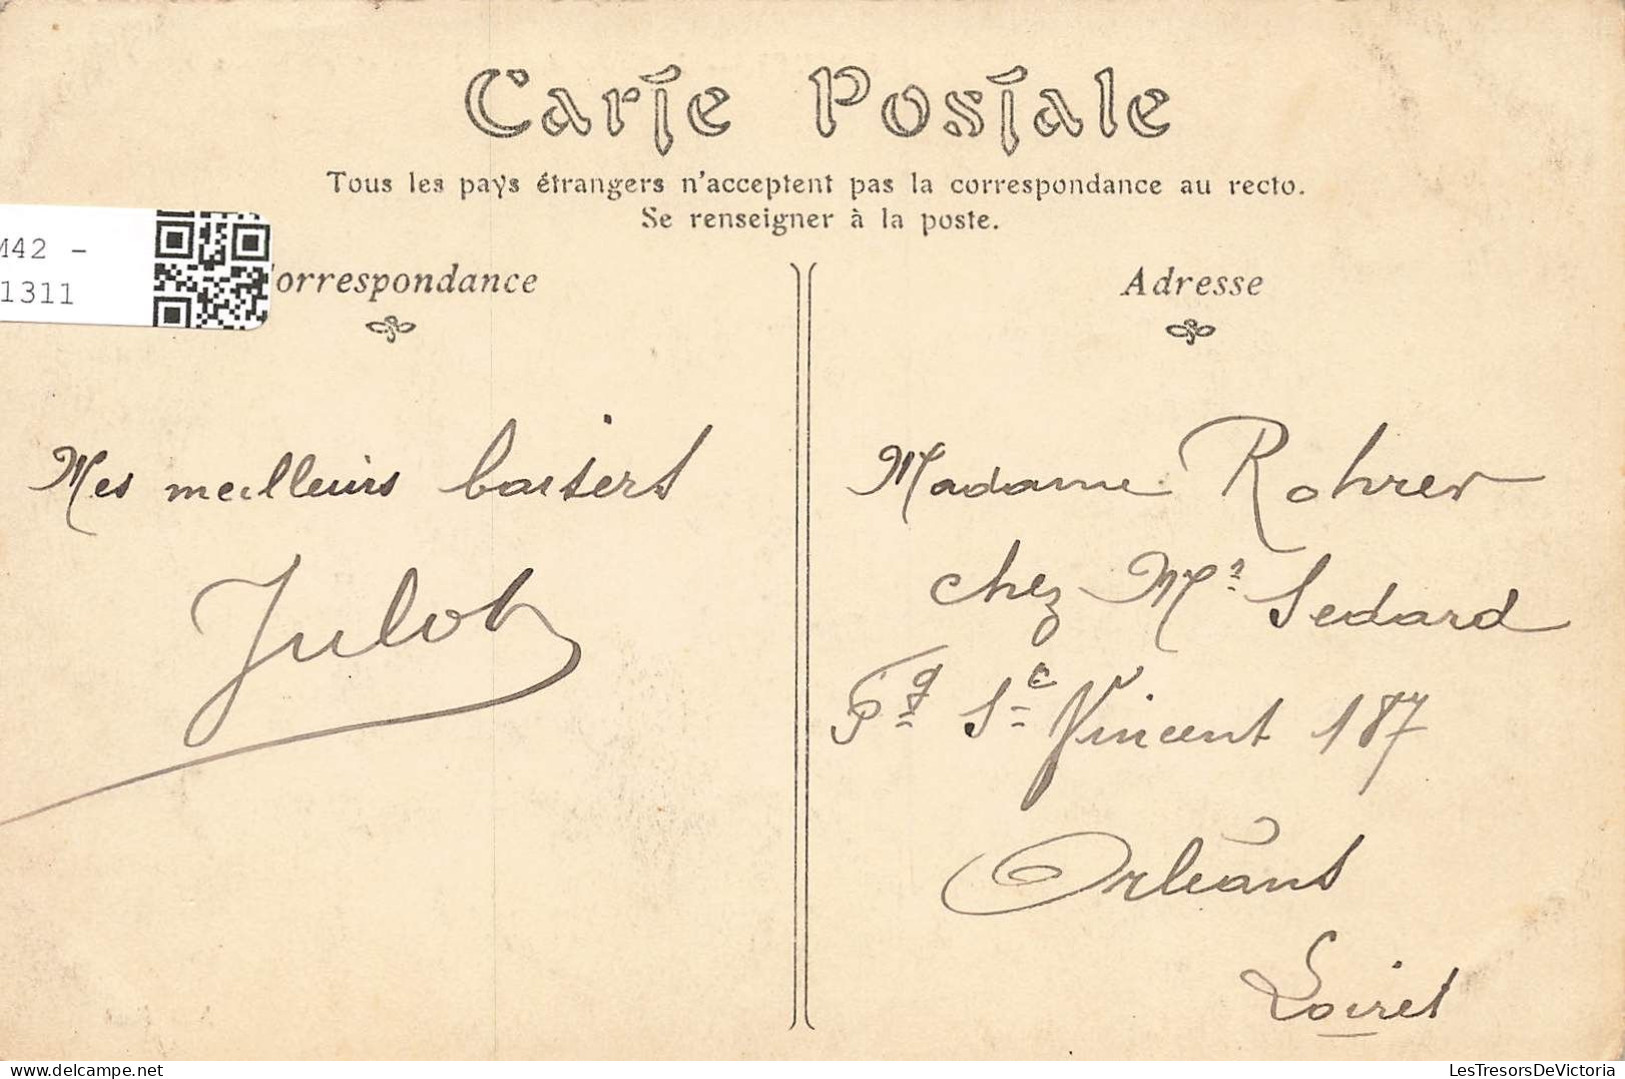 Carte Postale
Tous les pays étrangers n'acceptent pas la correspondance au recto.
Se renseigner à la poste.
M42 -
1311
Correspondance
Mes meilleurs baisers
Julot
Adresse
Madame Rohrer
chez Mr Sedard
Fg St Vincent 187
Orléans
Loiret
LesTresorsDeVictoria